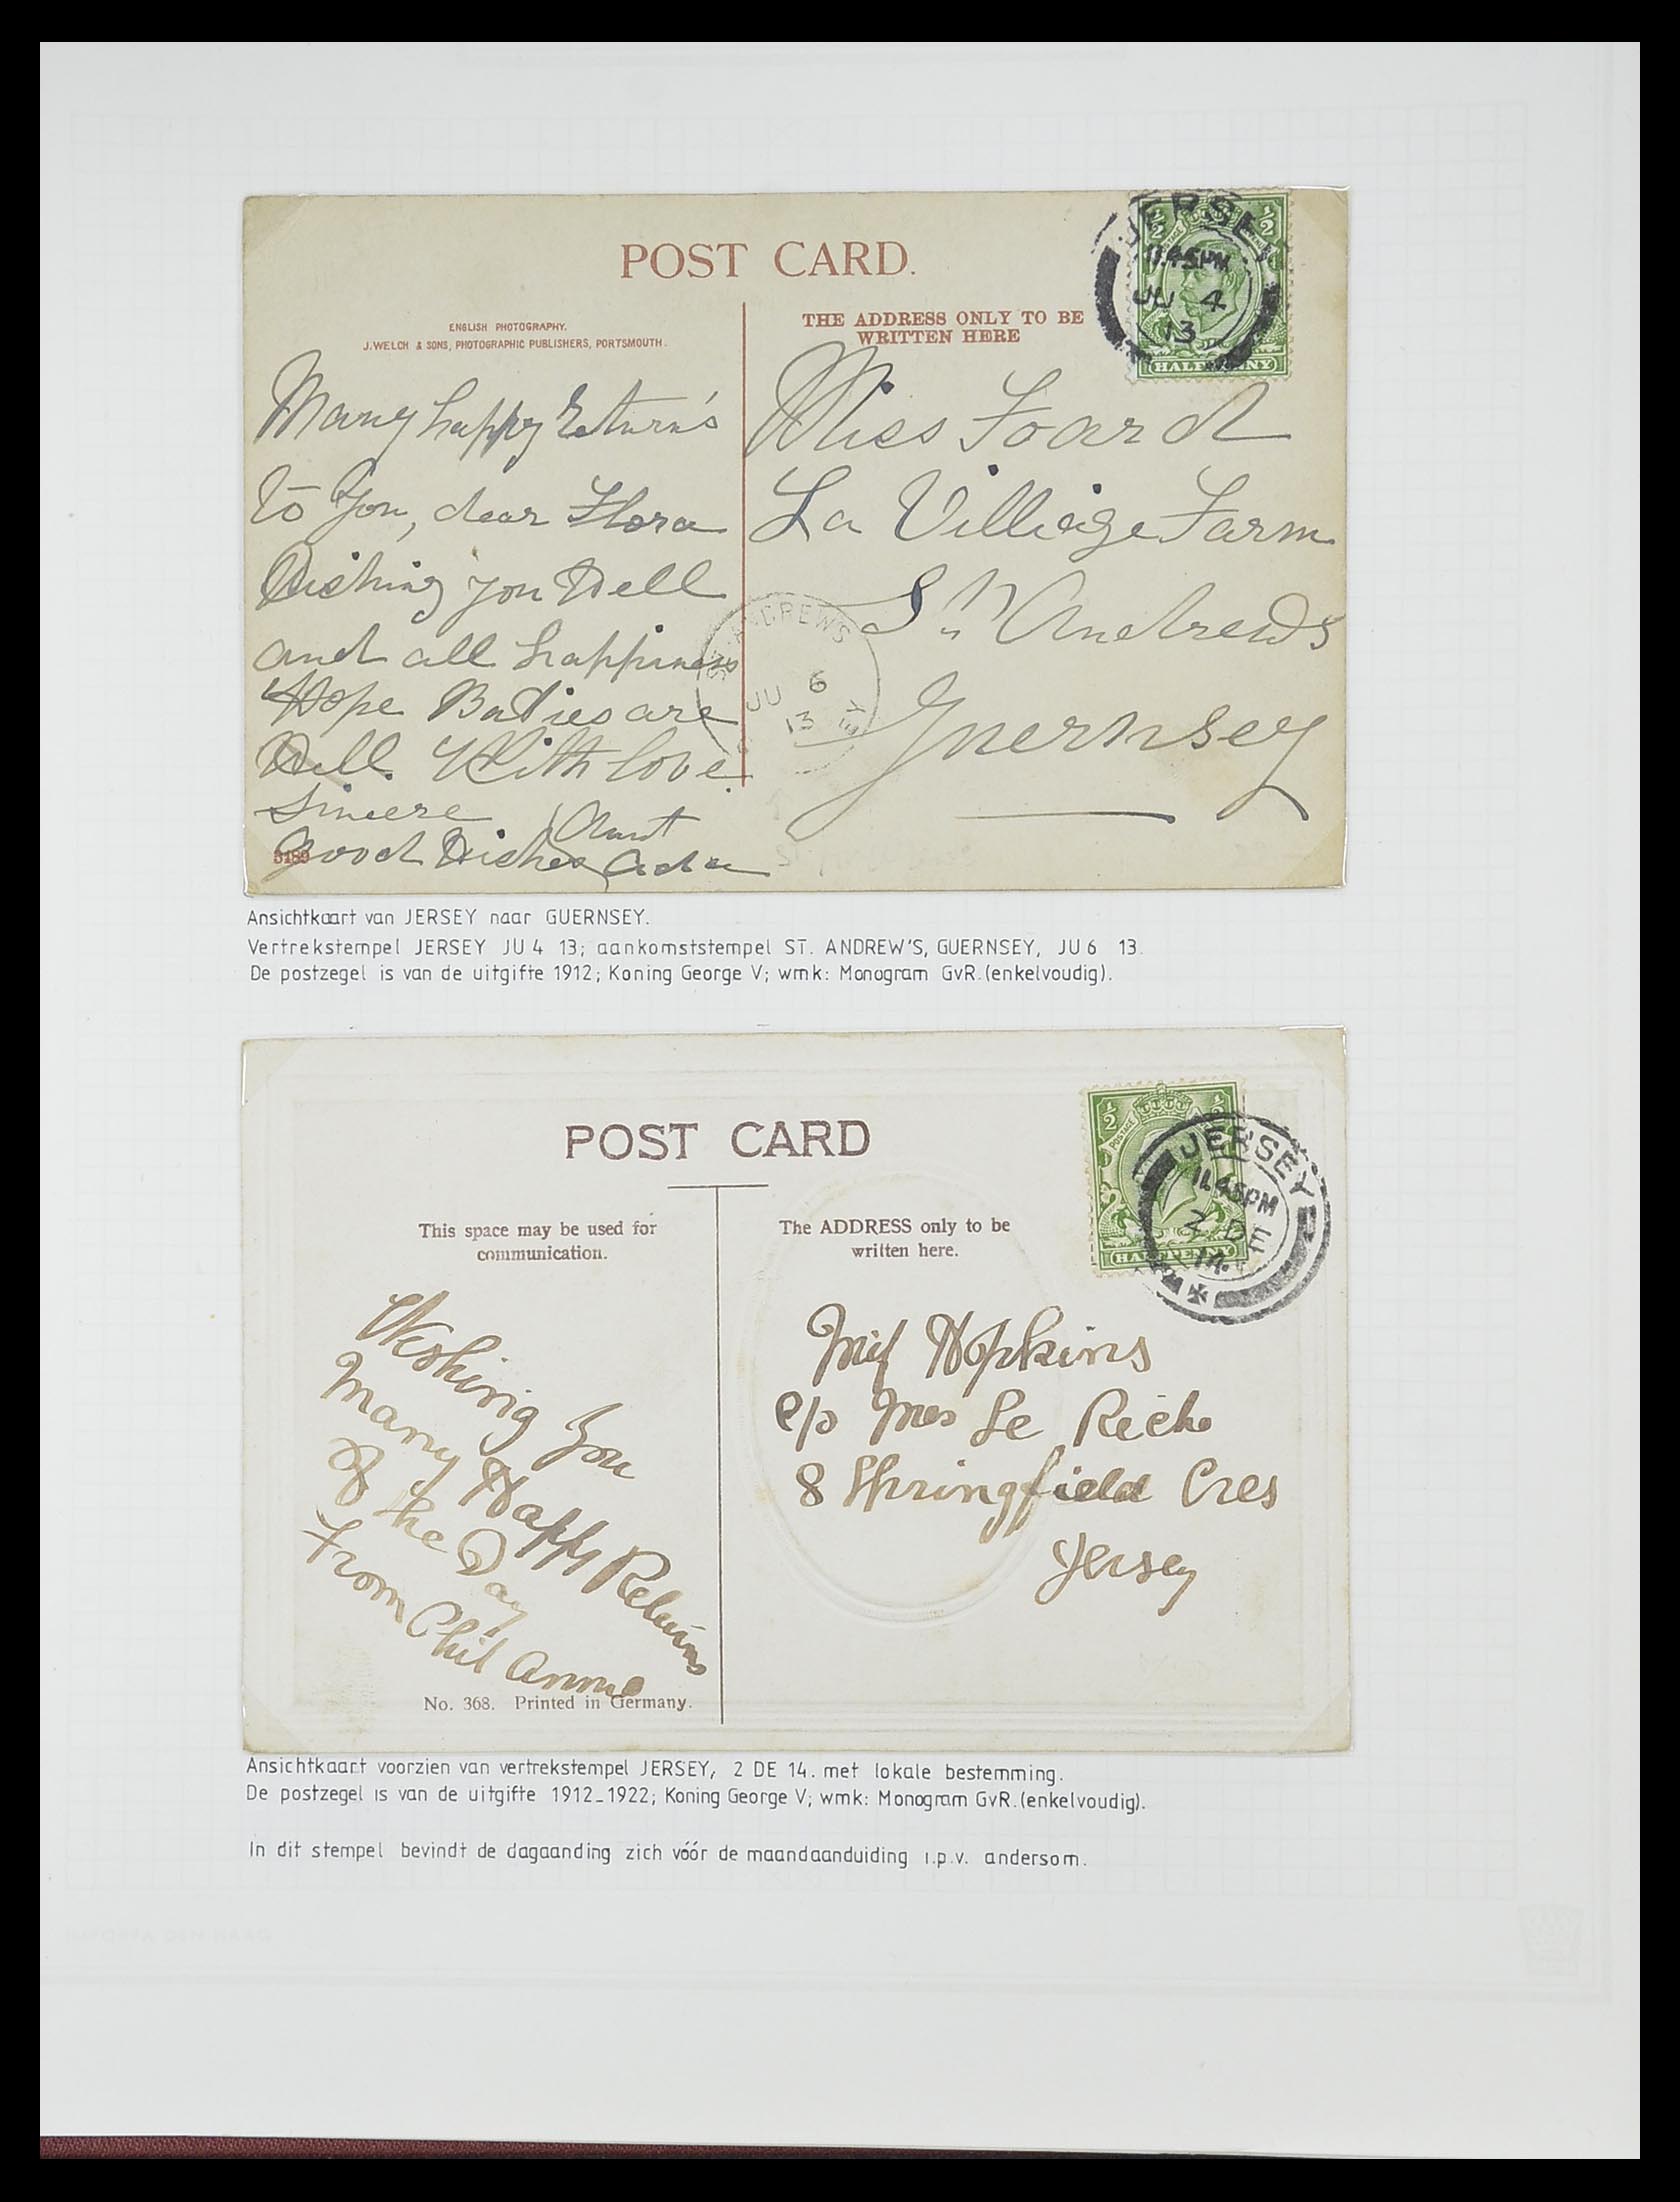 POST CARD.
ENGLISH PHOTOGRAPHY.
J. WELCH & SONS, PHOTOGRAPHIC PUBLISHERS, PORTSMOUTH.
THE ADDRESS ONLY TO BE
WRITTEN HERE
JERSEY
11.45PM
JU 4
13
HALFPENNY
Many happy Return's
to You, dear Flora
Wishing you Well
and all happiness
Hope Babies are
Well. With love
Sincere
Good Wishes Aunt
Ada
3189
Miss Foard
La Villiaige Farm
St Andrews
Guernsey
ST. ANDREWS
JU 6
13
Ansichtkaart van JERSEY naar GUERNSEY.
Vertrekstempel JERSEY JU 4 13; aankomststempel ST. ANDREW'S, GUERNSEY, JU 6 13.
De postzegel is van de uitgifte 1912; Koning George V; wmk: Monogram GvR.(enkelvoudig).
POST CARD
This space may be used for
communication.
The ADDRESS only to be
written here.
½ ½
POSTAGE
HALFPENNY
JERSEY
11.45PM
2 DE
14
Wishing you
Many Happy Returns
of the Day
From Phil Annie
No. 368. Printed in Germany.
Miss Hopkins
c/o Mrs Le Riche
8 Springfield Cres
Jersey
Ansichtkaart voorzien van vertrekstempel JERSEY, 2 DE 14. met lokale bestemming.
De postzegel is van de uitgifte 1912_1922; Koning George V; wmk: Monogram GvR.(enkelvoudig).
In dit stempel bevindt de dagaanding zich vóór de maandaanduiding i.p.v. andersom.